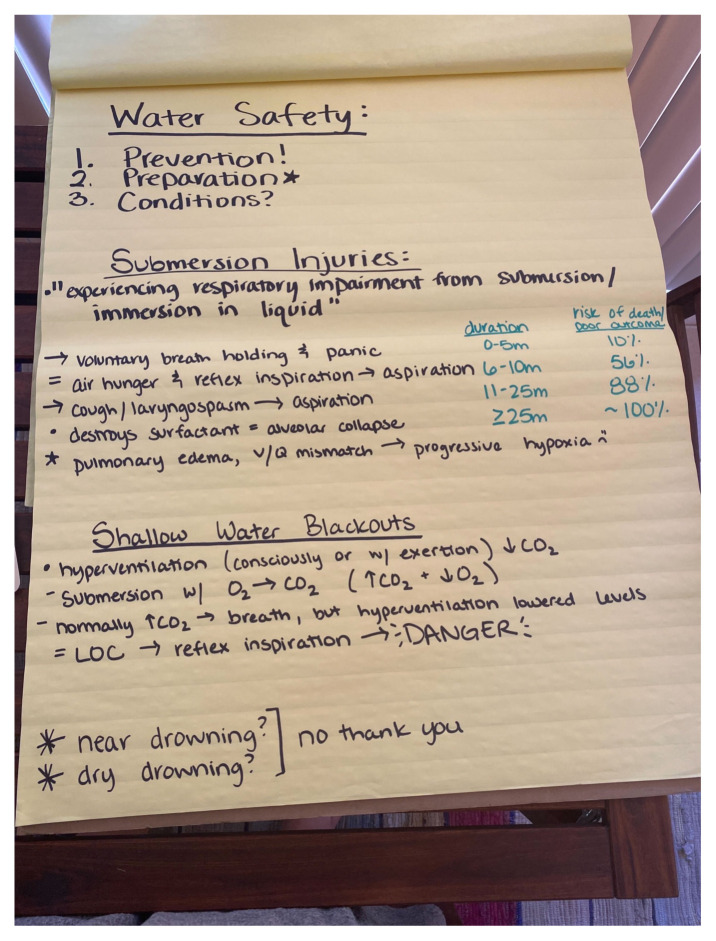 Water Safety:
1. Prevention!
2. Preparation★
3. Conditions?
Submersion Injuries:
• "experiencing respiratory impairment from submersion/
immersion in liquid"
→ voluntary breath holding & panic
= air hunger & reflex inspiration → aspiration
→ cough/laryngospasm → aspiration
• destroys surfactant = alveolar collapse
★ pulmonary edema, V/Q mismatch → progressive hypoxia
duration risk of death/
poor outcome
0-5m 10%
6-10m 56%
11-25m 88%
≥25m ~100%
Shallow Water Blackouts
• hyperventilation (consciously or w/ exertion) ↓CO₂
- submersion w/ O₂ → CO₂ (↑CO₂ + ↓O₂)
- normally ↑CO₂ → breath, but hyperventilation lowered levels
= LOC → reflex inspiration → DANGER
* near drowning?] no thank you
* dry drowning?